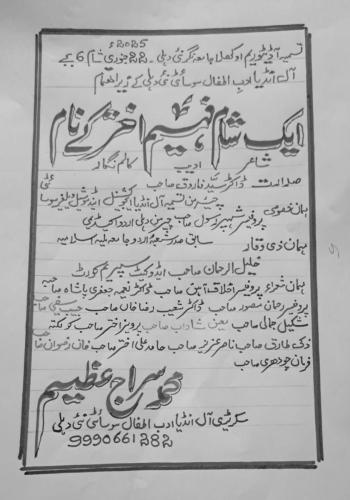 2025ء
تسمیہ آڈیٹوریم اوکھلا جامعہ نگر نئی دہلی۔ 22 جنوری شام 6 بجے
آل انڈیا ادب اطفال سوسائٹی نئی دہلی کے زیر اہتمام
ایک شام فہیم اختر کے نام
شاعر ادیب کالم نگار
صدارت ڈاکٹر سید فاروق صاحب
چیئرمین تسمیہ آل انڈیا ایجوکیشنل اینڈ سوشل ویلفیر سوسائٹی
مہمان خصوصی پروفیسر شہپر رسول صاحب چیئرمین دہلی اردو اکیڈمی
سابق صدر شعبۂ اردو جامعہ ملیہ اسلامیہ
مہمان ذی وقار
خلیل الرحمان صاحب ایڈوکیٹ سپریم کورٹ
مہمان شعراء پروفیسر اخلاق آہن صاحب ڈاکٹر نعیمہ جعفری پاشا صاحبہ
پروفیسر رحمان مصور صاحب ڈاکٹر شعیب رضا خاں صاحب حبیب سیفی صاحب
شکیل جمالی صاحب معین شاداب صاحب پرویز اختر صاحب کولکتہ
ذکی طارق صاحب ناصر عزیز صاحب حامد علی اختر صاحب خان رضوان صاحب
فرمان چودھری صاحب
محمد سراج عظیم
سکریٹری آل انڈیا ادب اطفال سوسائٹی نئی دہلی
9990661282